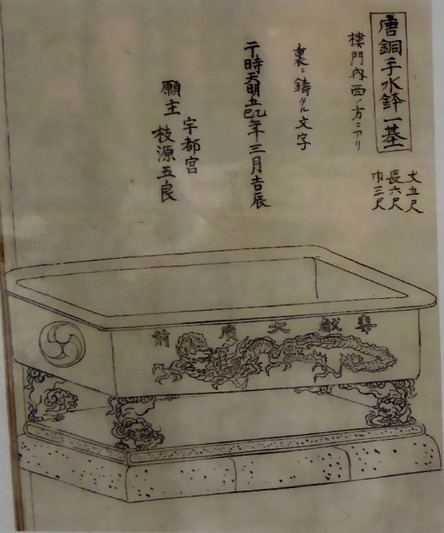 唐銅手水鉢一基
丈五尺
長六尺
巾三尺
樓門内西ノ方ニアリ
裏ニ鋳タル文字
于時天明五乙巳年三月吉辰
宇都宮
願主 枝源五良
奉献大廣前